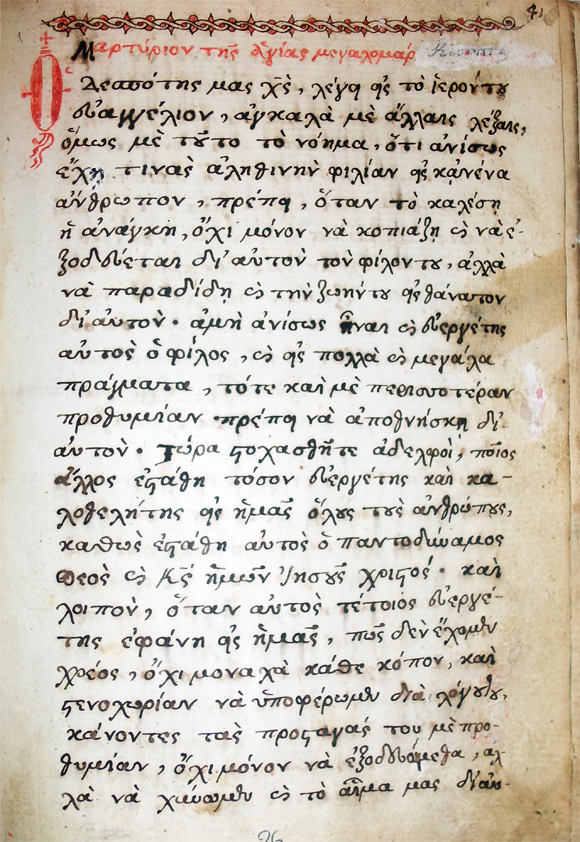 Μαρτύριον τῆς ἁγίας μεγαλομάρ
Ὁ Δεσπότης μας χς, λέγει εἰς τὸ ἱερόν του
εὐαγγέλιον, ἀγκαλὰ μὲ ἄλλαις λέξαις,
ὅμως μὲ τοῦτο τὸ νόημα, ὅτι ἀνίσως
ἔχῃ τινὰς ἀληθινὴν φιλίαν εἰς κᾀνένα
ἄνθρωπον, πρέπει, ὅταν τὸ καλέσῃ
ἡ ἀνάγκη, ὄχι μόνον νὰ κοπιάζῃ καὶ νὰ ἐ-
ξοδεύεται δι' αὐτὸν τὸν φίλον του, ἀλλὰ
νὰ παραδίδῃ καὶ τὴν ζωήν του εἰς θάνατον
δι' αὐτὸν· ἀμὴ ἀνίσως εἶναι καὶ εὐεργέτης
αὐτὸς ὁ φίλος, καὶ εἰς πολλὰ καὶ μεγάλα
πράγματα, τότε καὶ μὲ περισσοτέραν
προθυμίαν πρέπει νὰ ἀποθνήσκῃ δι'
αὐτὸν· Τώρα στοχασθῆτε ἀδελφοὶ, ποῖος
ἄλλος ἐστάθη τόσον εὐεργέτης καὶ κα-
λοθελητὴς εἰς ἡμᾶς ὅλους τοὺς ἀνθρώπους,
καθὼς ἐστάθη αὐτὸς ὁ παντοδύναμος
Θεὸς καὶ Κς ἡμῶν Ἰησοῦς χριστός· καὶ
λοιπὸν, ὅταν αὐτὸς τέτοιος εὐεργέ-
της ἐφάνη εἰς ἡμᾶς, πῶς δὲν ἔχομεν
χρέος, ὄχι μοναχὰ κάθε κόπον, καὶ
στενοχωρίαν νὰ ὑποφέρωμεν διὰ λόγου του,
κάνοντες τὰς προσταγάς του μὲ προ-
θυμίαν, ὄχι μόνον νὰ ἐξοδευόμεθα, ἀλ-
λὰ νὰ χύνωμεν καὶ τὸ αἷμα μας δι' αὐ-
26